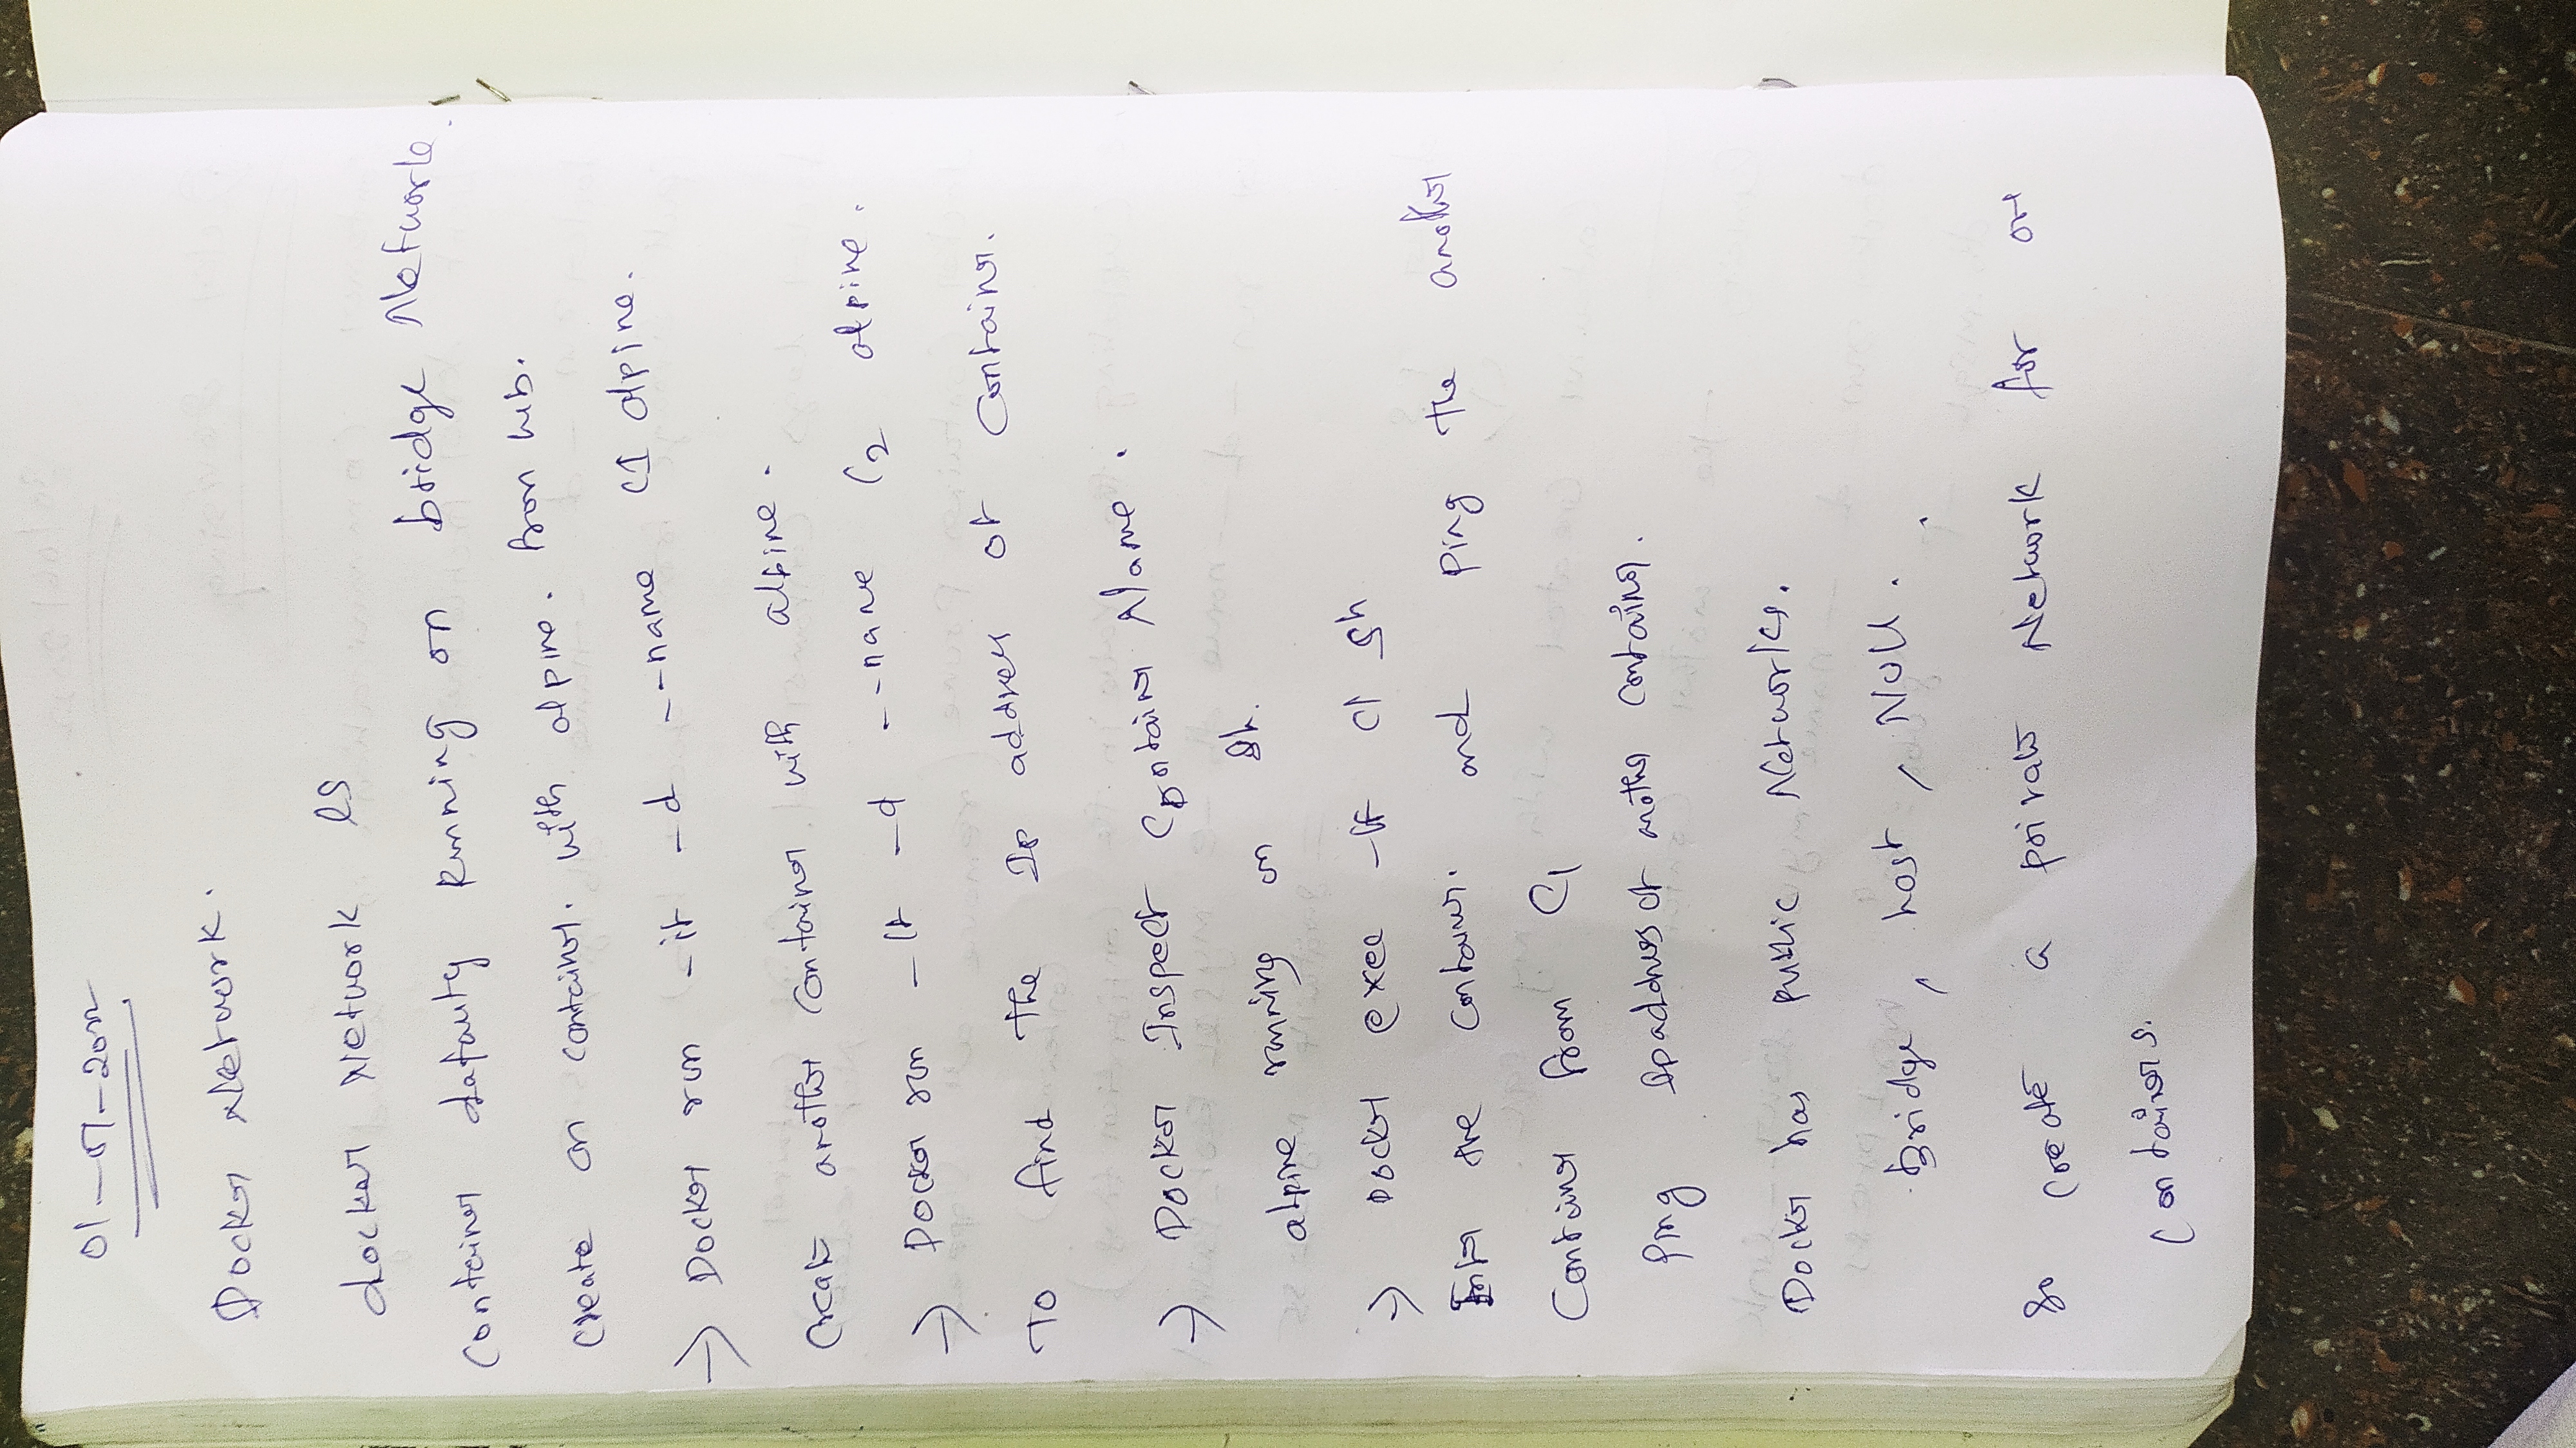 01-07-2022
Docker Network.
docker Network ls
Container defauty Running on bridge Network.
Create an container. with alpine. from hub.
-> Docker run -it -d --name C1 alpine.
Create another container with alpine.
-> Docker run -it -d --name C2 alpine.
To find the Ip address of Container.
-> Docker Inspect Container Name.
alpine running on sh.
-> Docker exec -it C1 sh
Enter the container. and Ping the another
Container from C1
Ping Ip address of another container.
Docker has Public Networks.
Bridge, host, Null.
So Create a private Network for
Containers.